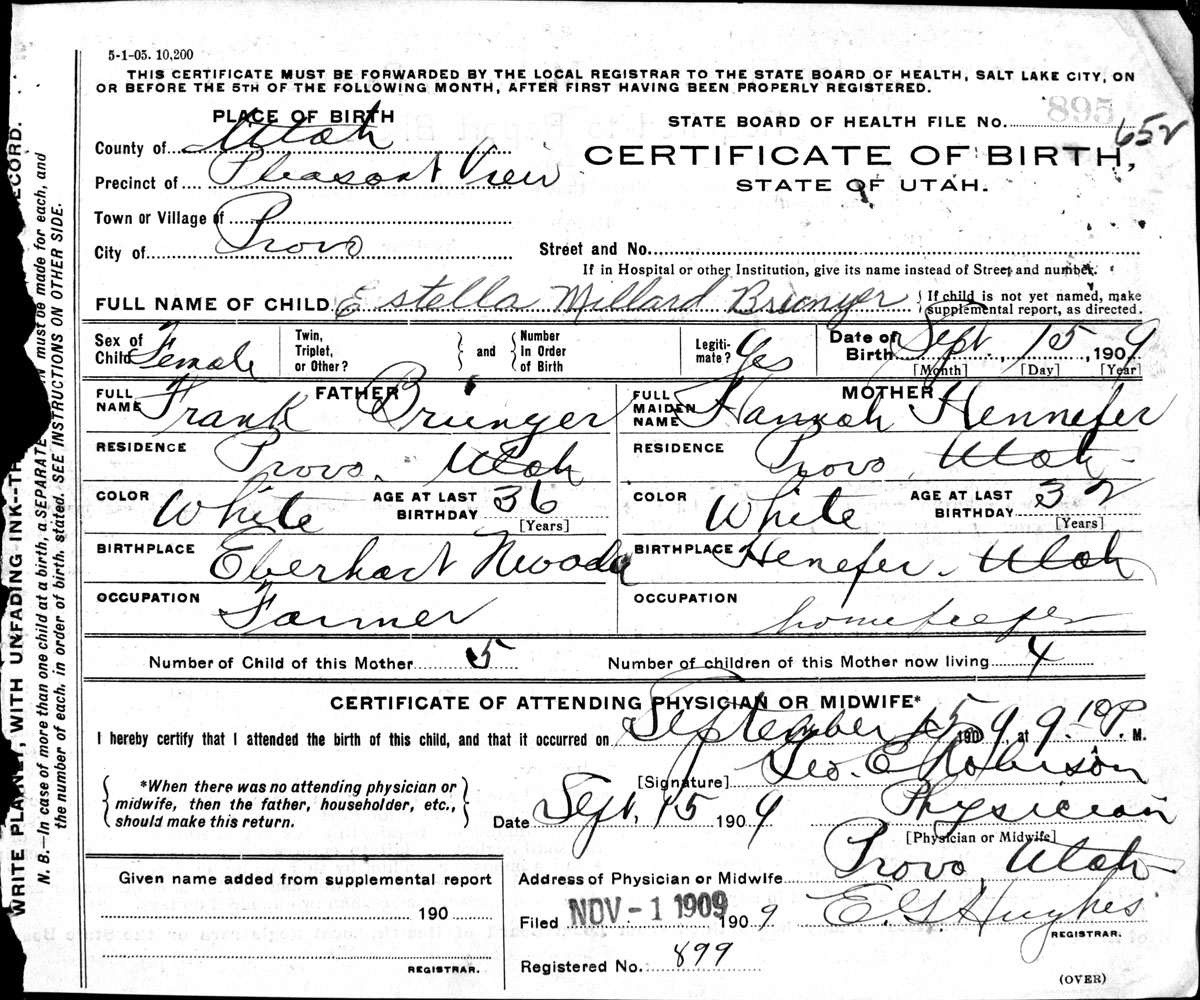 5-1-05. 10,200
THIS CERTIFICATE MUST BE FORWARDED BY THE LOCAL REGISTRAR TO THE STATE BOARD OF HEALTH, SALT LAKE CITY, ON
OR BEFORE THE 5TH OF THE FOLLOWING MONTH, AFTER FIRST HAVING BEEN PROPERLY REGISTERED.
PLACE OF BIRTH
STATE BOARD OF HEALTH FILE No. 895 652
County of Utah
CERTIFICATE OF BIRTH,
Precinct of Pleasant View
STATE OF UTAH.
Town or Village of
City of Provo
Street and No.
If in Hospital or other Institution, give its name instead of Street and number.
FULL NAME OF CHILD Estella Millard
If child is not yet named, make
supplemental report, as directed.
Sex of Child Female
Twin, Triplet, or Other?
and
Number in Order of Birth
Legiti-mate? Yes
Date of Birth Sept, 15, 1909
[Month] [Day] [Year]
FATHER
FULL NAME Frank
RESIDENCE Provo, Utah
COLOR White
AGE AT LAST BIRTHDAY 36
[Years]
BIRTHPLACE Eberhart
OCCUPATION Farmer
MOTHER
FULL MAIDEN NAME Hannah Hennefer
RESIDENCE Provo, Utah
COLOR White
AGE AT LAST BIRTHDAY 32
[Years]
BIRTHPLACE Henefer, Utah
OCCUPATION homekeeper
Number of Child of this Mother 5
Number of children of this Mother now living 4
CERTIFICATE OF ATTENDING PHYSICIAN OR MIDWIFE*
I hereby certify that I attended the birth of this child, and that it occurred on September 15 1909, at 9 10 P. M.
*When there was no attending physician or
midwife, then the father, householder, etc.,
should make this return.
[Signature] Geo. E. Robison
Date Sept, 15 1909
Physician
[Physician or Midwife]
Address of Physician or Midwife Provo, Utah
Given name added from supplemental report
190
REGISTRAR.
Filed NOV - 1 1909 1909
E. G. Hughes
REGISTRAR.
Registered No. 899
(OVER)
WRITE PLAINLY, WITH UNFADING INK--
RECORD.
N. B.—In case of more than one child at a birth, a SEPARATE must be made for each, and
the number of each, in order of birth, stated. SEE INSTRUCTIONS ON OTHER SIDE.